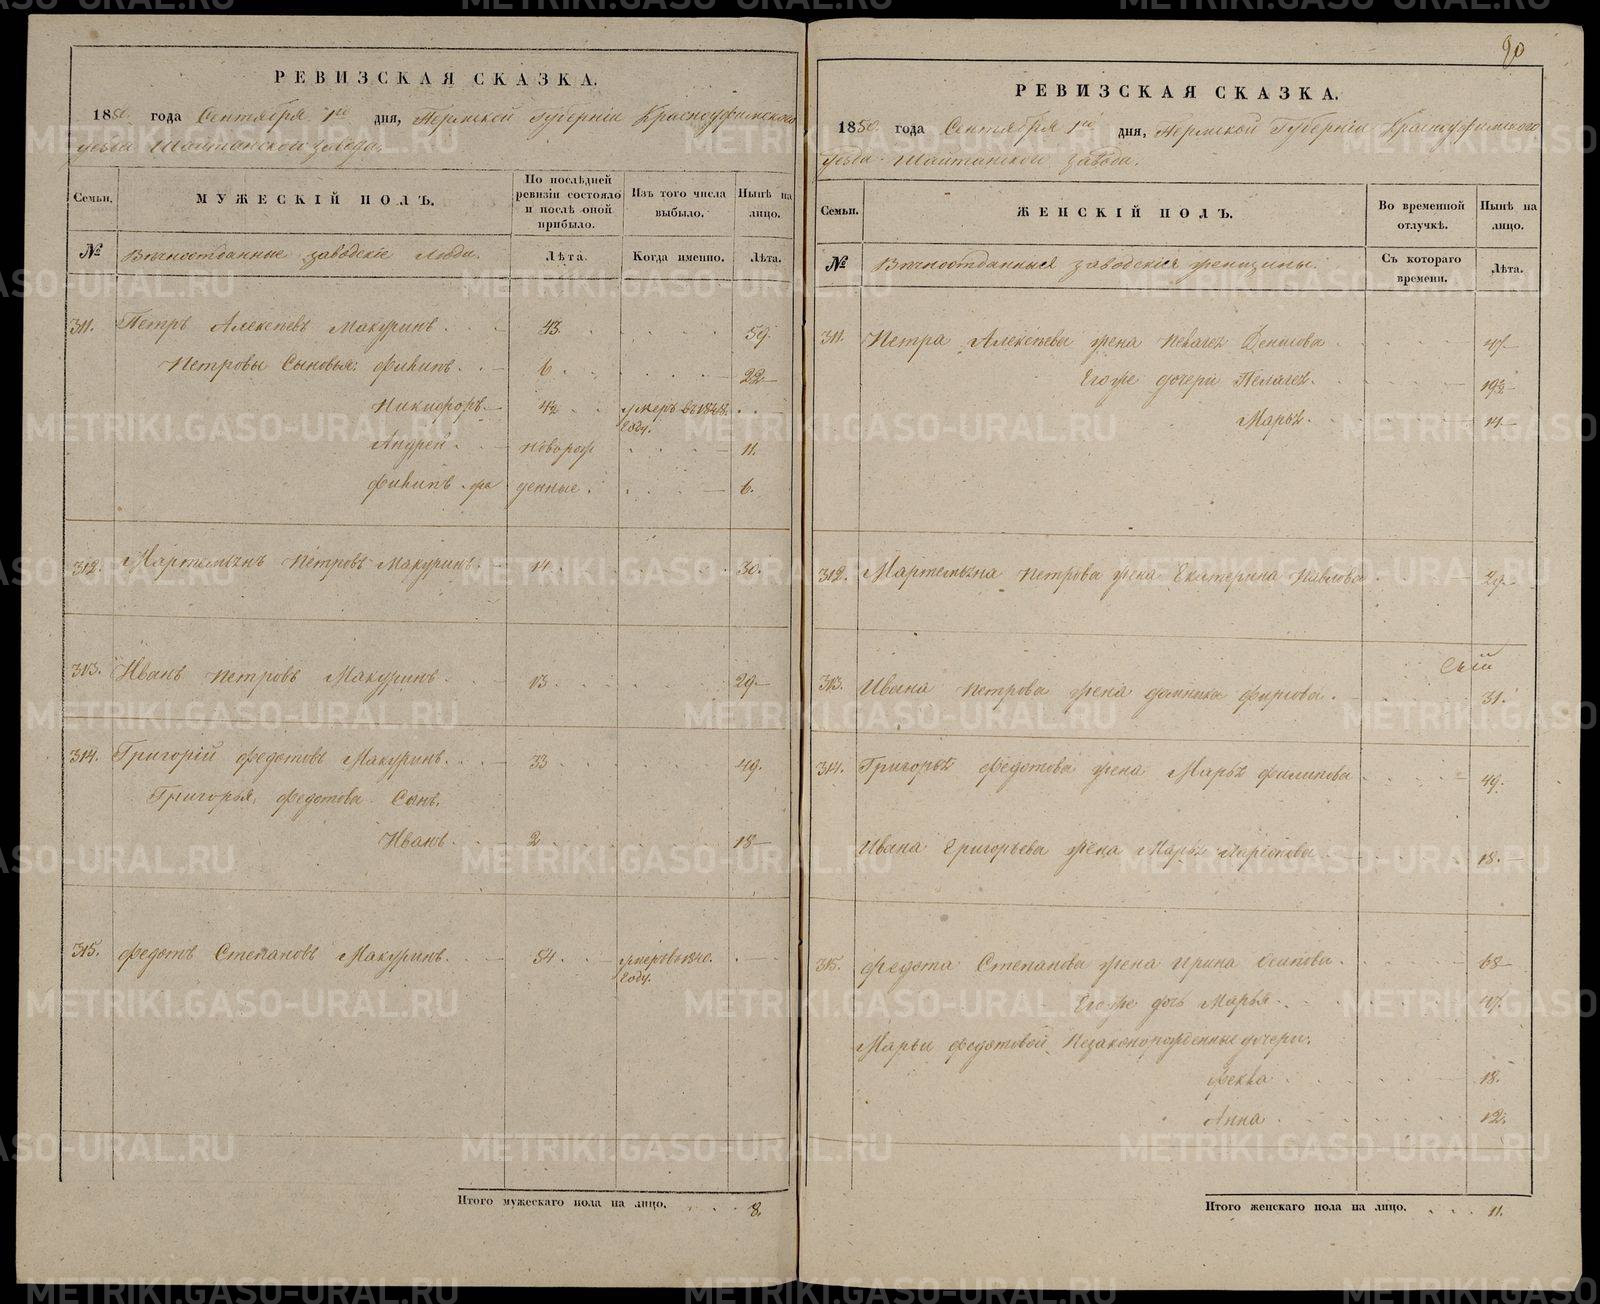 90
РЕВИЗСКАЯ СКАЗКА.
1850. года Сентября 1го дня, Пермской Губерніи Красноуфимского
уезда Шайтанской завода.
Семьи. МУЖЕСКІЙ ПОЛЪ. По послѣдней ревизіи состояло и послѣ оной прибыло. Изъ того числа выбыло. Нынѣ на лицо.
№ Вечноотданные заводскіе люди. Лѣта. Когда именно. Лѣта.
311. Петръ Алексеевъ Макуринъ. 43. 59.
Петровы Сыновья: Филипъ. 6. 22
Никифоръ. 4½ умеръ въ 1848. году.
Андрей. новорож 11.
Филипъ денные. 6.
312. Мартемьянъ Петровъ Макуринъ. 14. 30.
313. Иванъ Петровъ Макуринъ. 13. 29
314. Григорій Федотовъ Макуринъ. 33 49.
Григорья Федотова Сынъ.
Иванъ. 2 18
315. Федотъ Степановъ Макуринъ. 54. умеръ в 1840. году.
Итого мужескаго пола на лицо. 8.
РЕВИЗСКАЯ СКАЗКА.
1850. года Сентября 1го дня, Пермской Губерніи Красноуфимского
уезда Шайтанской завода.
Семьи. ЖЕНСКІЙ ПОЛЪ. Во временной отлучкѣ. Нынѣ на лицо.
№ Вечноотданныя заводскія женщины. Съ котораго времени. Лѣта.
311. Петра Алексеева жена Пелагея Денисова 47
Его же дочери Пелагея. 19½
Марья. 14
312. Мартемьяна Петрова жена Екатерина Павлова 29
313. Ивана Петрова жена Фирсова. 31.
314. Григорья Федотова жена Марья Филипова 49.
Ивана Григорьева жена Марья Ларионова 18.
315. Федота Степанова жена Ирина Осипова. 68
Его же дочь Марья. 47.
Марьи Федотовой Незаконорожденные дочери:
Фекла 18.
Анна 12.
Итого женскаго пола на лицо. 11.
METRIKI.GASO-URAL.RU